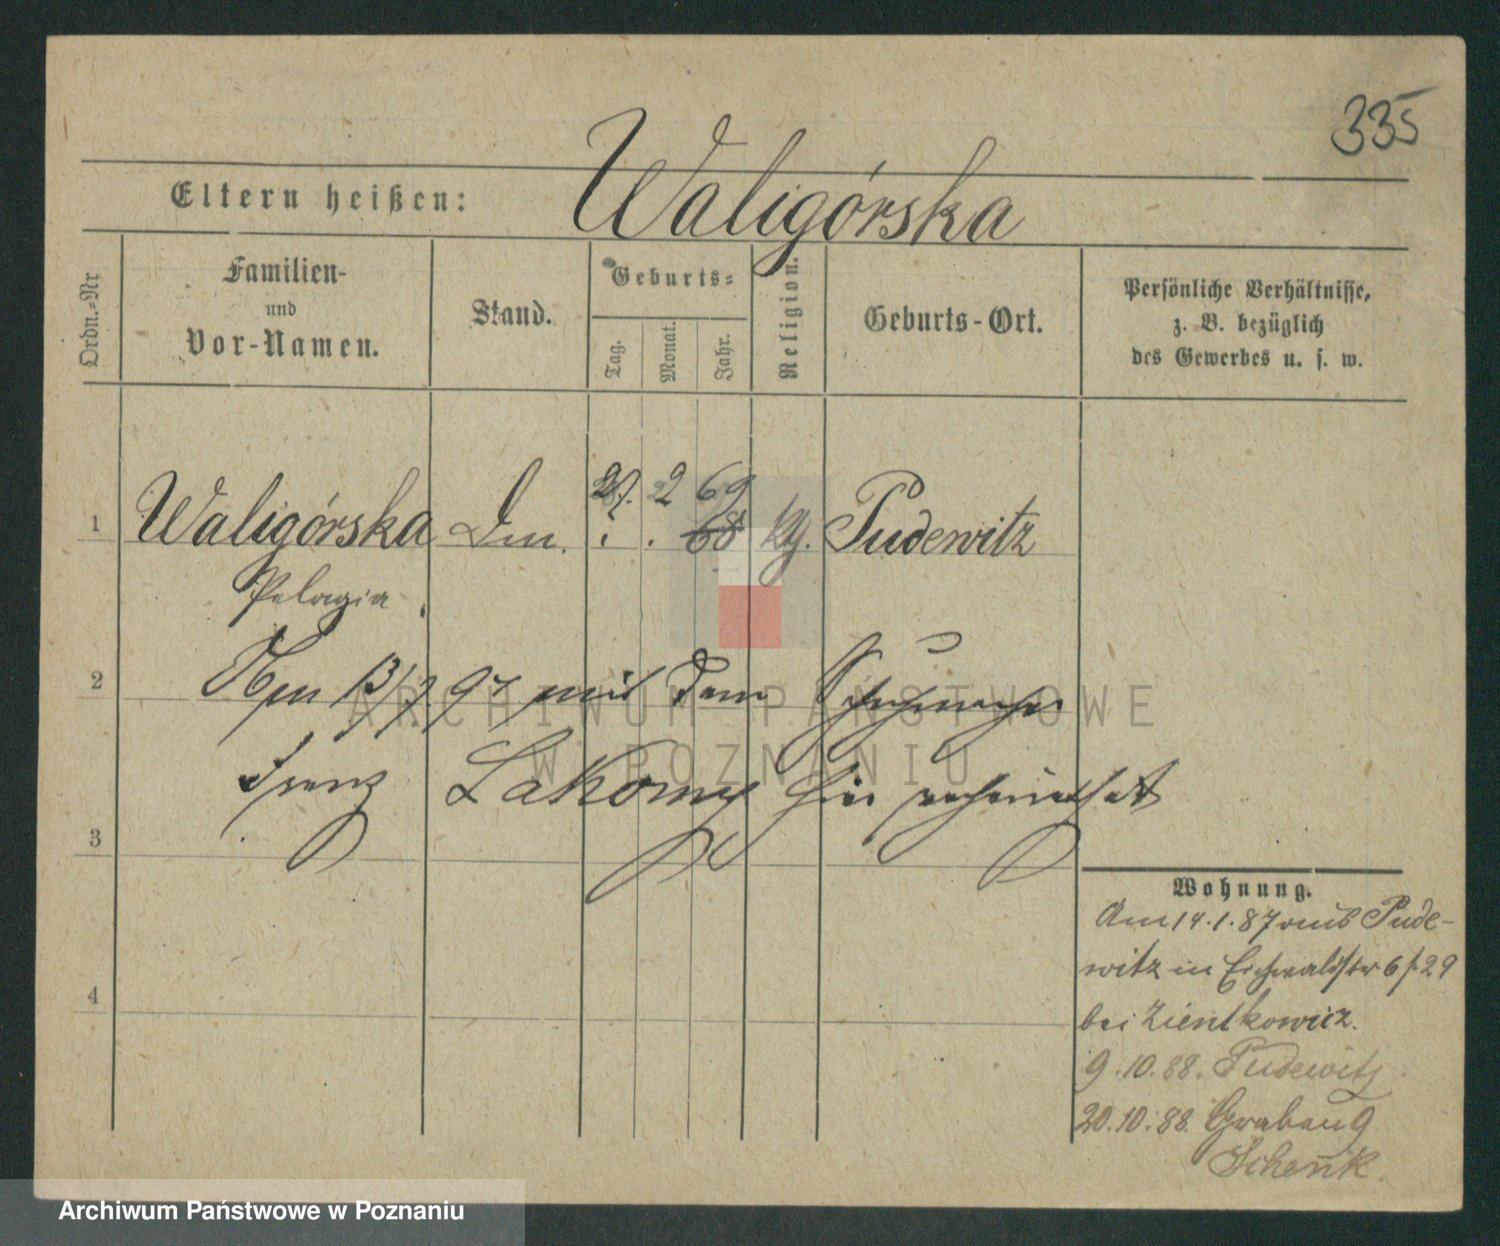 335
Eltern heißen: Waligórska
Ordn.-Nr
Familien-
und
Vor-Namen.
Stand.
Geburts-
Tag.
Monat.
Jahr.
Religion.
Geburts-Ort.
Persönliche Verhältnisse,
z. B. bezüglich
des Gewerbes u. s. w.
27. 2 69
1 Waligórska Dm. . . 68 kg. Pudewitz
Pelagia
2 13/7. 97 mit dem Schuhmacher
Franz Lakomy hier verheirathet
3
4
Wohnung.
Am 14.1.87 aus Pude-
witz in Eichwaldstr 6 / 29
bei Zientkowicz.
9.10.88. Pudewitz
20.10.88. Graben 9
Schenk
ARCHIWUM PAŃSTWOWE
W POZNANIU
Archiwum Państwowe w Poznaniu